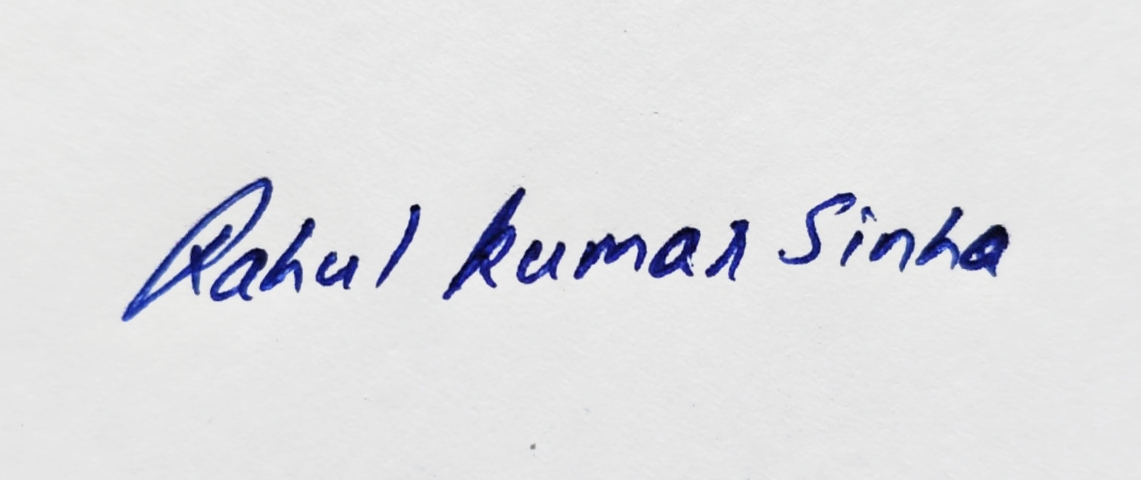 Rahul kumar Sinha